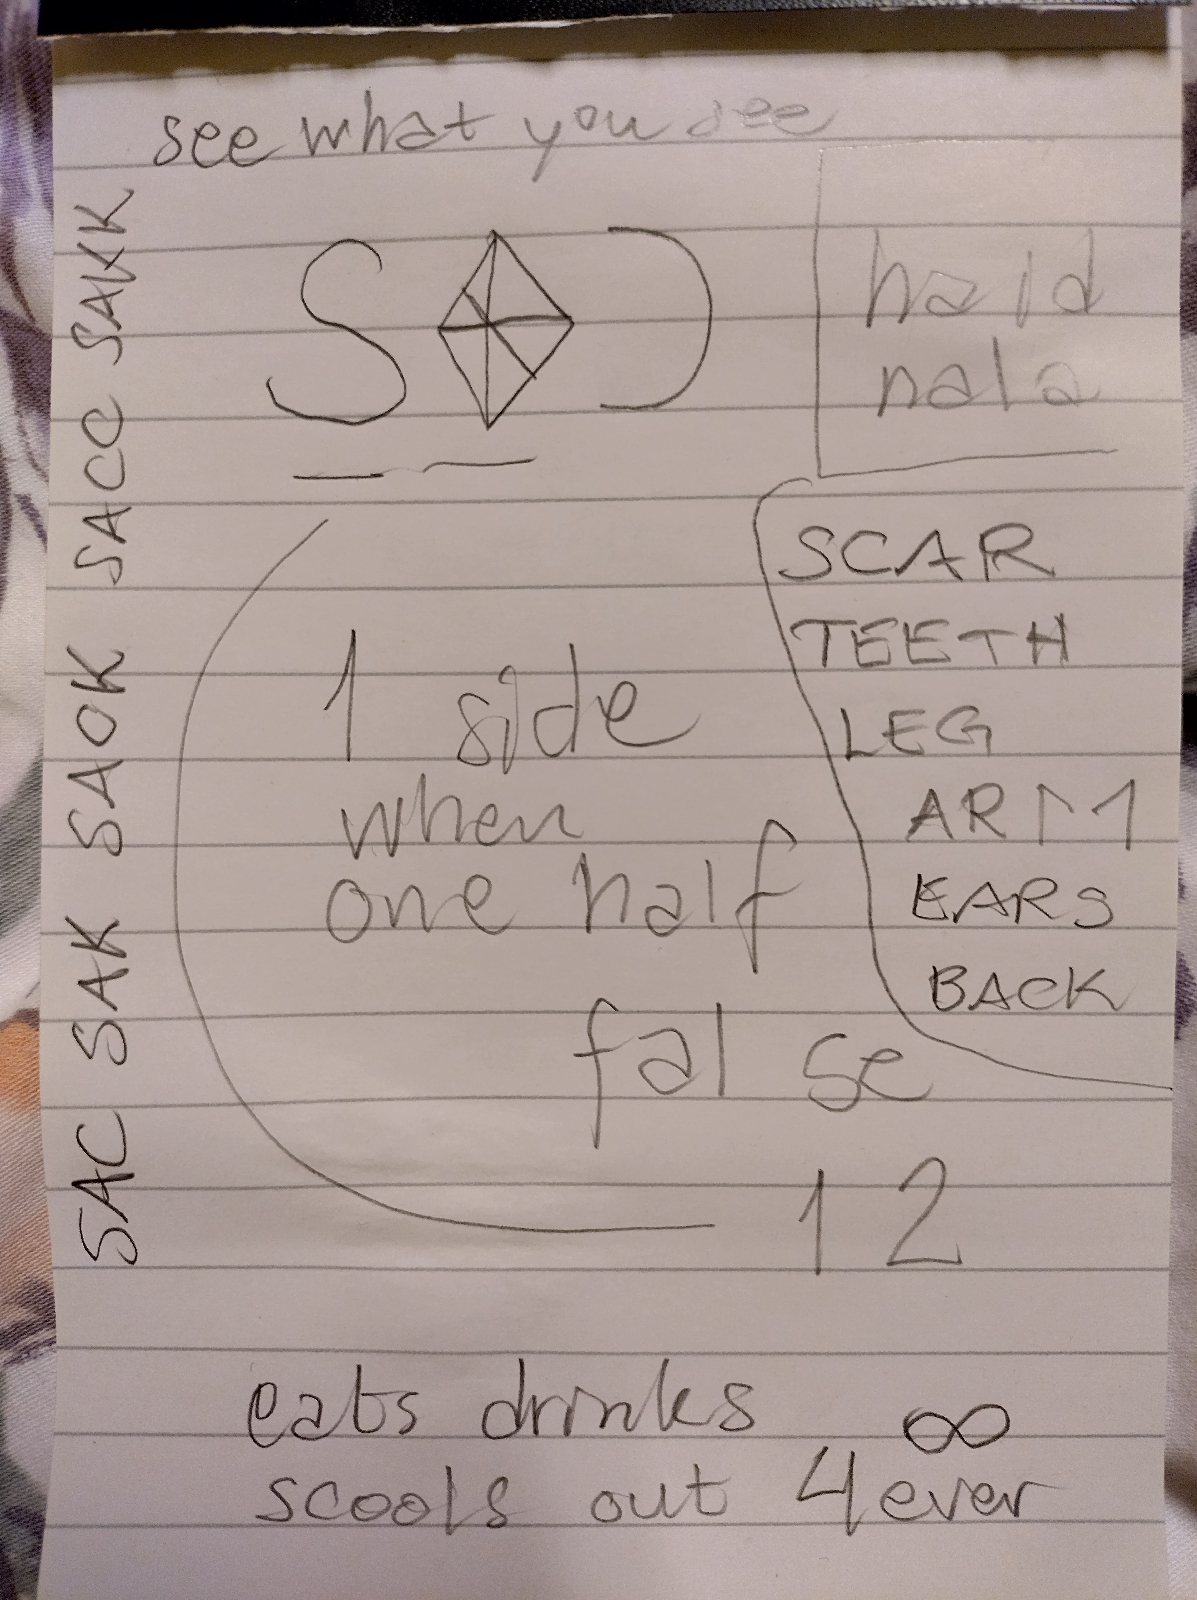 see what you see
SAC SAK SAOK SACC SAKK
S
haid
nala
SCAR
TEETH
LEG
ARM
EARS
BACK
1 side
when
one half
fal se
12
eats drinks ∞
scools out 4ever